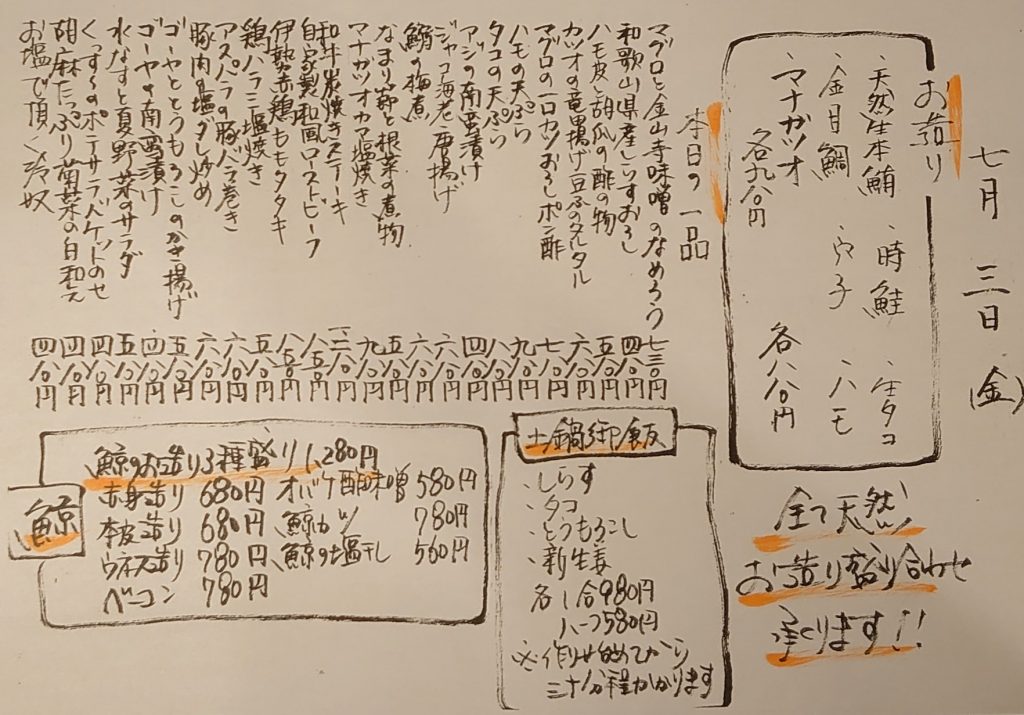 七月三日(金)
お造り
・天然生本鮪 ・時鮭 ・生タコ
・金目鯛 ・穴子 ・ハモ
各八八〇円
・マナガツオ
各九八〇円
全て天然
お造り盛り合わせ
承ります!!
本日の一品
マグロと金山寺味噌のなめろう 七三〇円
和歌山県産しらすおろし 四八〇円
ハモ皮と胡瓜の酢の物 五八〇円
カツオの竜田揚げ豆ふのタルタル 六八〇円
マグロの一口カツおろしポン酢 七八〇円
ハモの天ぷら 九八〇円
タコの天ぷら 八八〇円
アジの南蛮漬け 四八〇円
ジャコ海老唐揚げ 六八〇円
鰯の梅煮 六八〇円
なまり節と根菜の煮物 五八〇円
マナガツオカマ塩焼き 九八〇円
和牛炭焼きステーキ
自家製和風ローストビーフ
伊勢赤鶏ももタタキ
鶏ハラミ塩焼き 五八〇円
アスパラの豚バラ巻き 六八〇円
豚肉の塩ダレ炒め 六八〇円
ゴーヤととうもろこしのかき揚げ 五八〇円
ゴーヤの南蛮漬け 四八〇円
水なすと夏野菜のサラダ 五八〇円
くっすーのポテサラバケットのせ 四八〇円
胡麻たっぷり菊菜の白和え 四八〇円
お塩で頂く冷奴 四八〇円
土鍋御飯
・しらす
・タコ
・とうもろこし
・新生姜
各1合980円
ハーフ580円
※作り始めてから
三十分程かかります
鯨
鯨のお造り3種盛り 1,280円
赤身造り 680円 オバケ酢味噌 580円
本皮造り 680円 鯨カツ 780円
ウネス造り 780円 鯨の塩干し 560円
ベーコン 780円